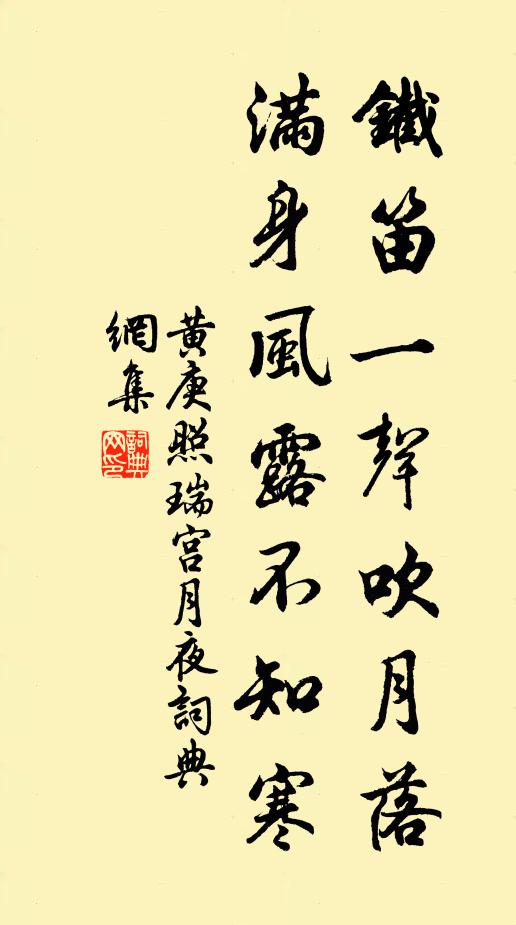 鐵笛一聲吹月落
滿身風露不知寒
黃庚照瑞宮月夜詞典
網集
詞典網印